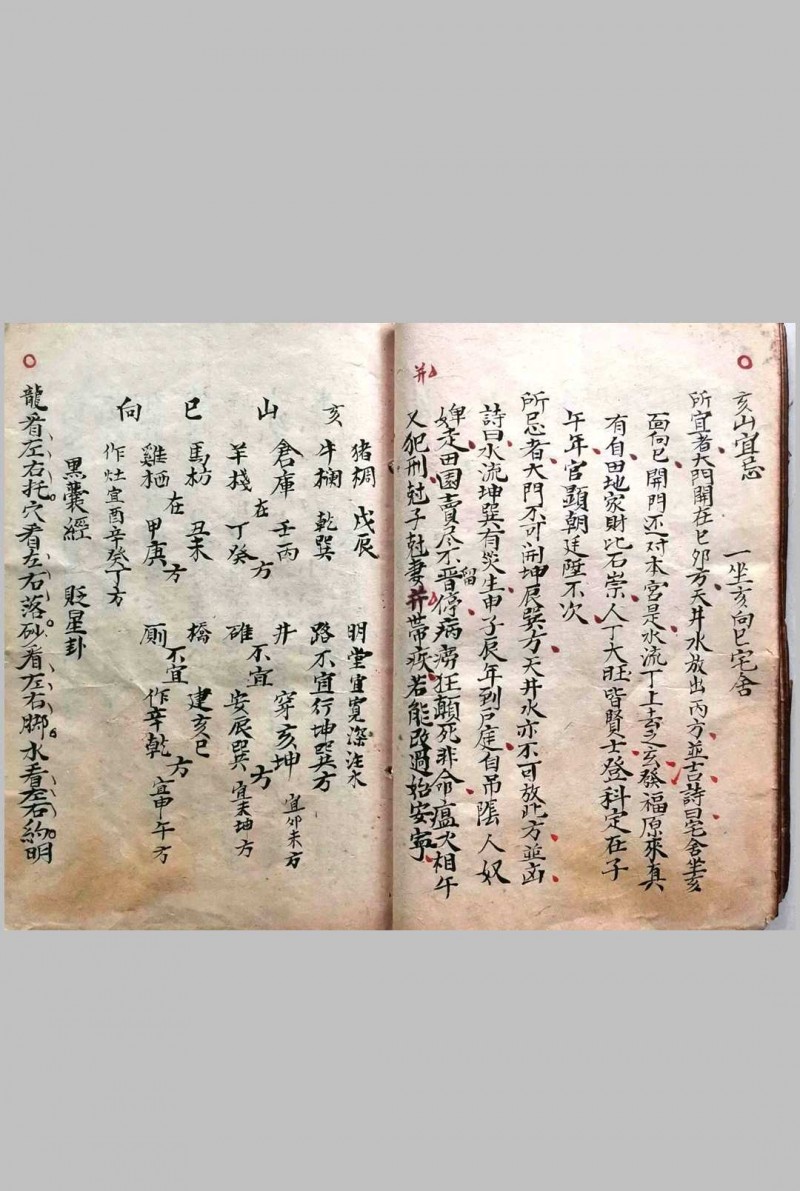 亥山宜忌　一坐亥向巳宅舍
所宜者大門開在巳卯方天井水放出丙方並吉詩曰宅舍坐亥
面向巳開門还对本宮是水流丁上去之玄發福原來真
有自田地家財比石崇人丁大旺皆賢士登科定在子
午年官顯朝廷陞不次
所忌者大門不可開坤辰巽方天井水亦不可放此方並凶
詩曰水流坤巽有災生申子辰年到戶庭自吊陰人奴
婢走田園賣尽不晋停病癆狂顛死非命瘟火相午
留
又犯刑尅子尅妻并帶疾若能改過始安寧
并
猪椆　戊辰　明堂宜寬深注水
牛欄　乾巽　路不宜行坤巽方
倉庫　壬丙　井　穿亥坤　宜卯未方
在　方　不宜　方
羊棧　丁癸　碓　安辰巽　宜未坤方
馬枋　丑未　橋　建亥巳
在　方　不宜　方
雞栖　甲庚　厠　作辛乾　宜申午方
作灶宜酉辛癸丁方
亥山巳向
黑囊經　貶星卦
龍看左右托穴看左右落砂看左右脚水看左右約明